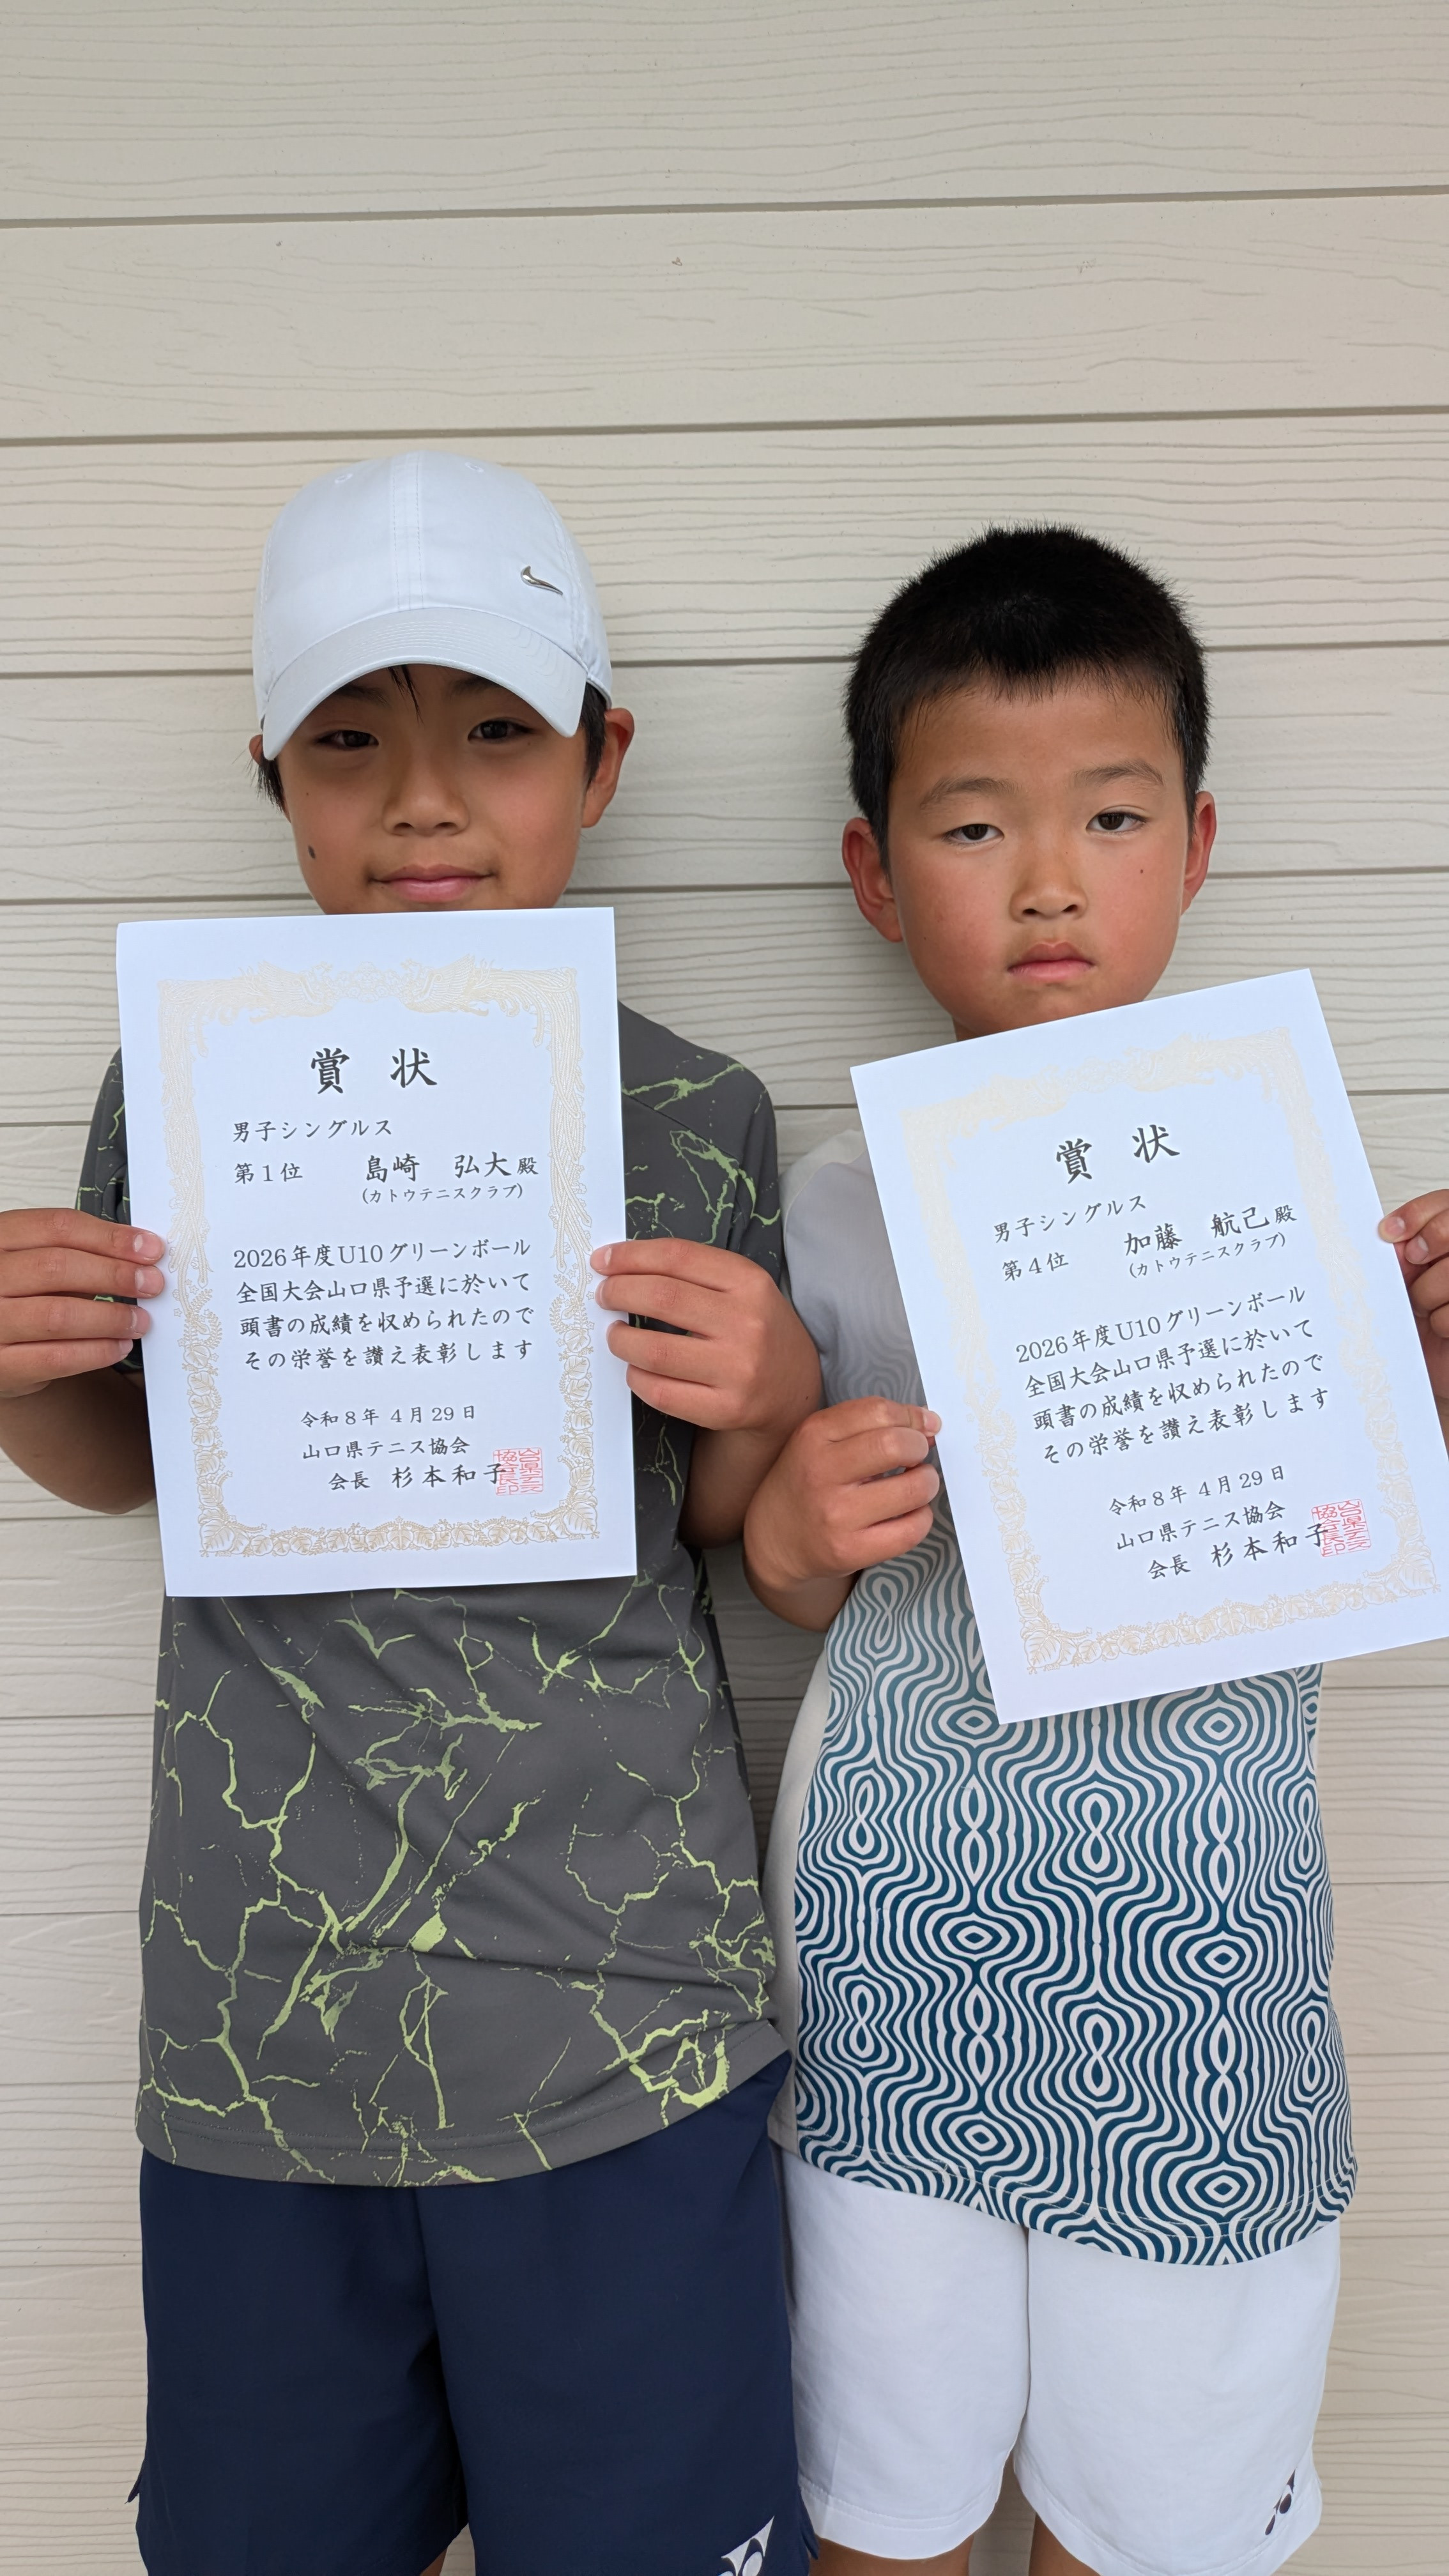 賞状
男子シングルス
第1位 島崎 弘大殿
(カトウテニスクラブ)
2026年度U10グリーンボール
全国大会山口県予選に於いて
頭書の成績を収められたので
その栄誉を讃え表彰します
令和8年 4月29日
山口県テニス協会
会長 杉本和子
賞状
男子シングルス
第4位 加藤 航己殿
(カトウテニスクラブ)
2026年度U10グリーンボール
全国大会山口県予選に於いて
頭書の成績を収められたので
その栄誉を讃え表彰します
令和8年 4月29日
山口県テニス協会
会長 杉本和子